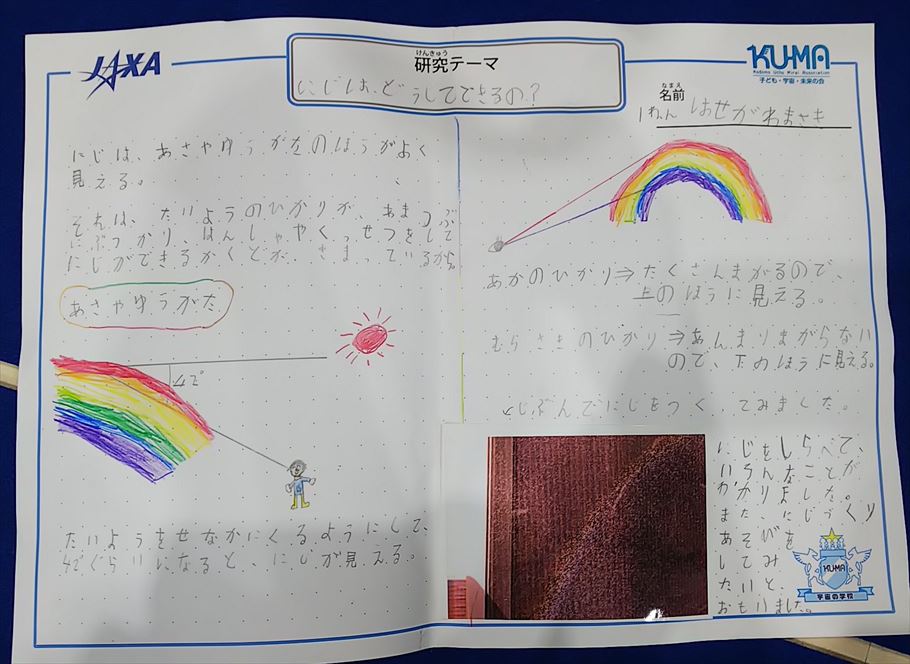 JAXA
けんきゅう
研究テーマ
にじは、どうしてできるの?
KU-MA
Kodomo Uchu Mirai Association
子ども・宇宙・未来の会
なまえ
名前
1ねん はせがわまさき
にじは、あさやゆうがたのほうがよく
見える。
それは、たいようのひかりが、あまつぶ
にぶつかり、はんしゃやくっせつをして
にじができるかくどが、きまっているから。
あさやゆうがた
42°
たいようをせなかにくるようにして、
42°ぐらいになると、にじが見える。
あかのひかり⇒たくさんまがるので、
上のほうに見える。
むらさきのひかり⇒あんまりまがらない
ので、下のほうに見える。
じぶんでにじをつくってみました。
にじをしらべて、
いろんなことが
わかりました。
また、にじづくり
あそびを
してみ
たいと、
おもいました。
KUMA
宇宙の学校